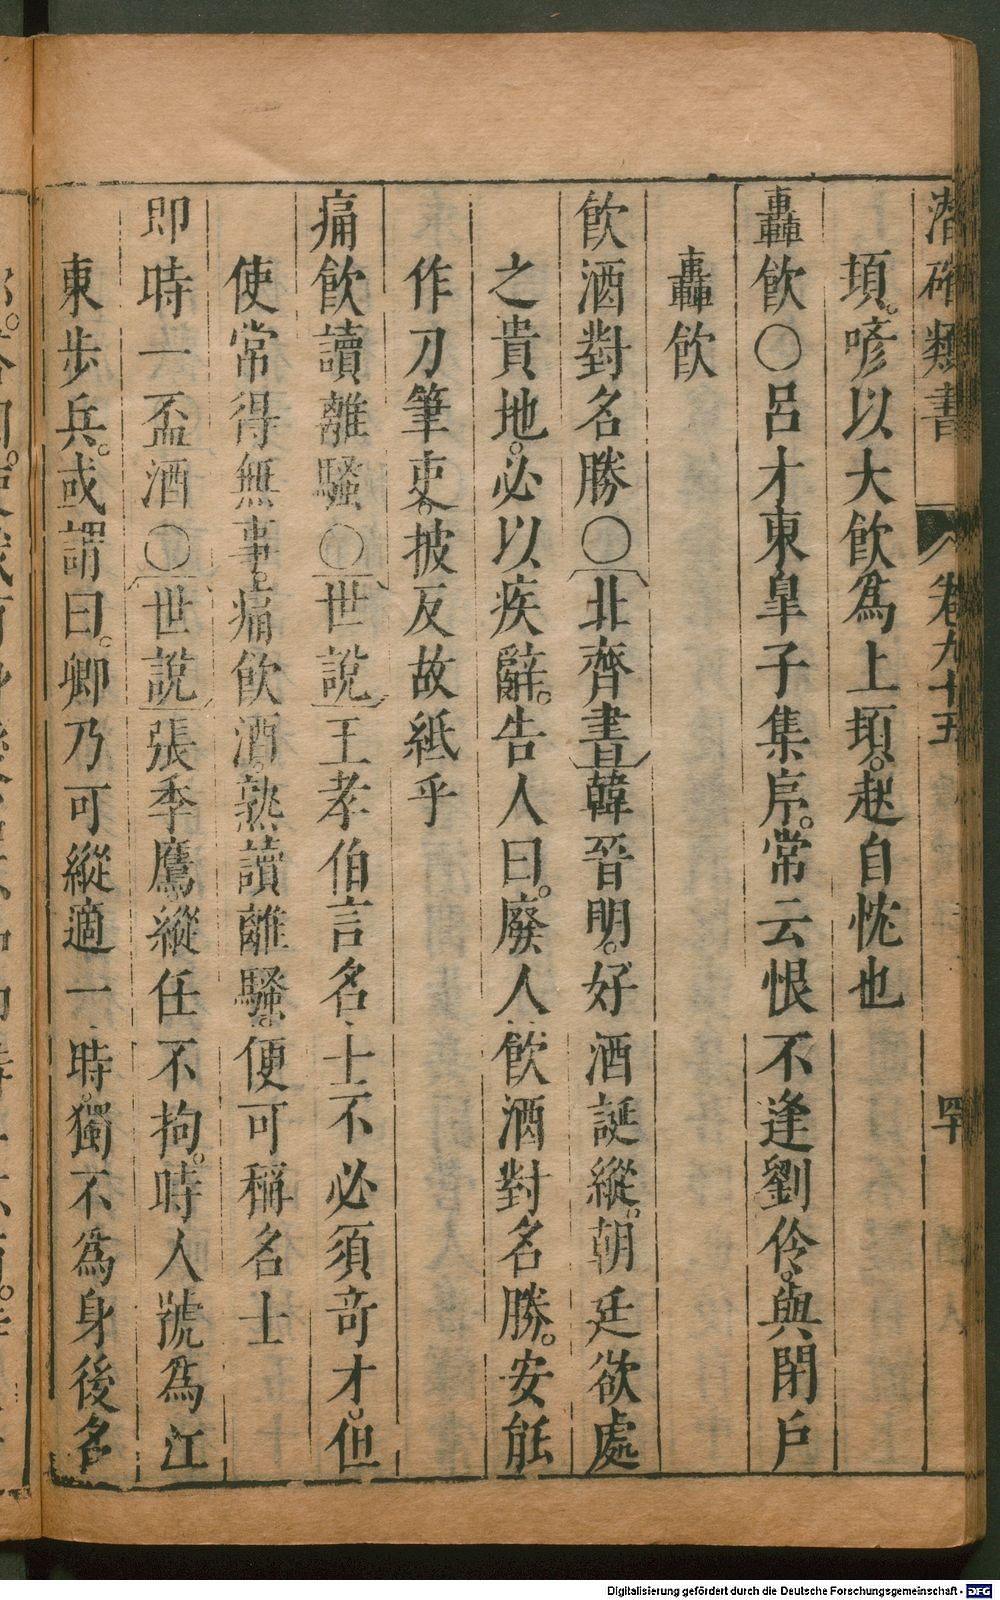 潛確類書 卷九十五 四十
頃。喭以大飲爲上頃。起自忱也
轟飲〇呂才東皐子集序。常云恨不逢劉伶。與閉戶
轟飲
飲酒對名勝〇北齊書韓晉明。好酒誕縱。朝廷欲處
之貴地。必以疾辭。告人曰。廢人飲酒對名勝。安能
作刀筆吏。披反故紙乎
痛飲讀離騷〇世說王孝伯言名士不必須奇才。但
使常得無事。痛飲酒。熟讀離騷。便可稱名士
即時一盃酒〇世說張季鷹。縱任不拘。時人號爲江
東步兵。或謂曰。卿乃可縱適一時。獨不爲身後名
Digitalisierung gefördert durch die Deutsche Forschungsgemeinschaft - DFG